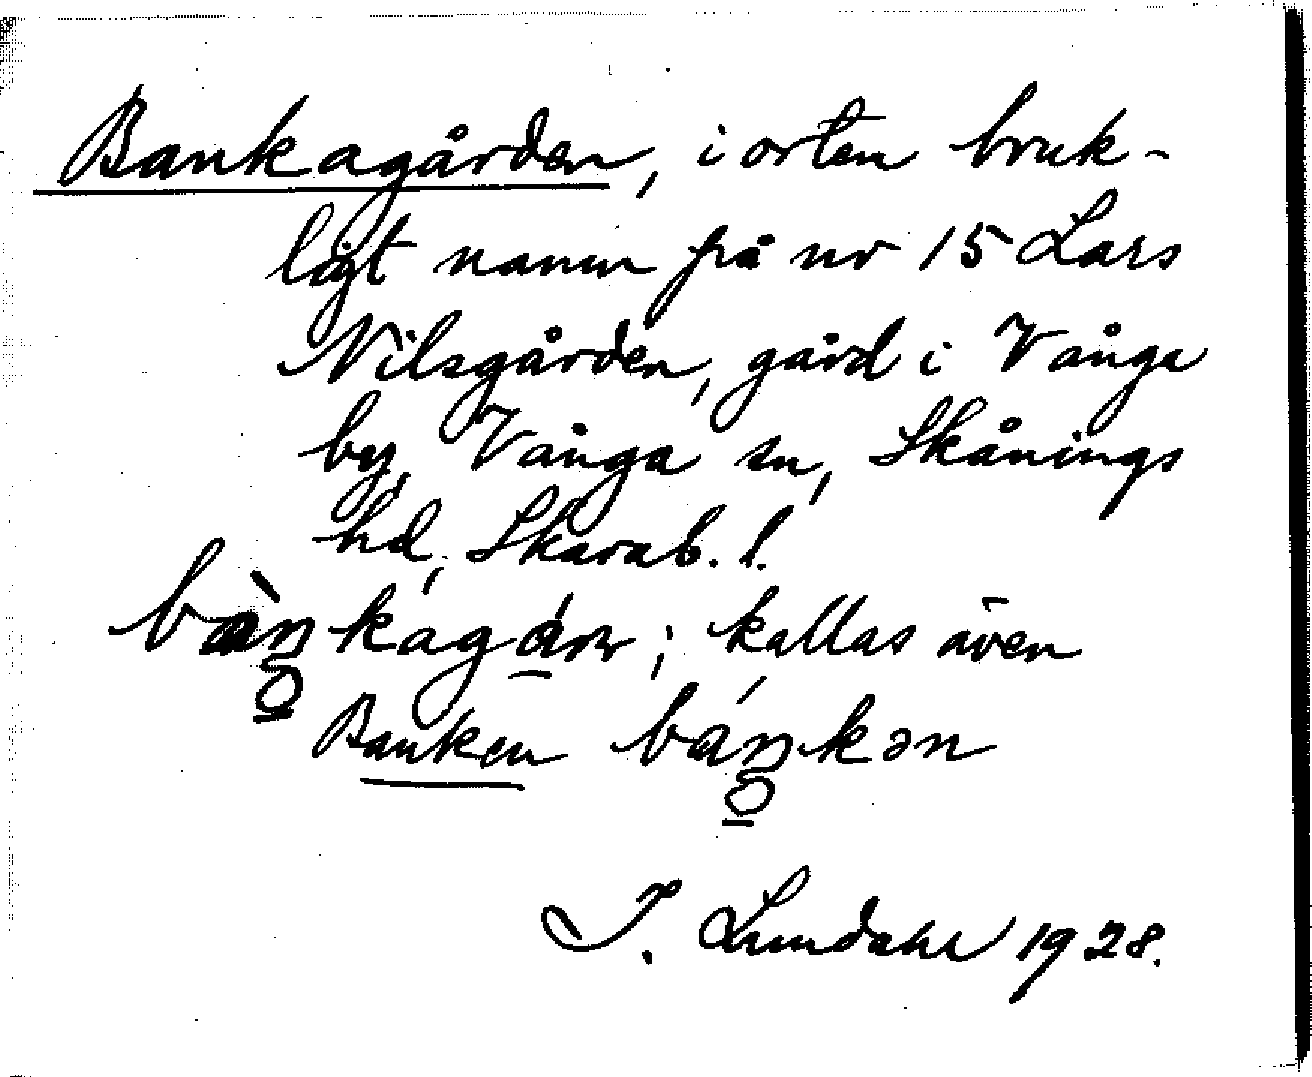 Bankagården, i orten bruk-
ligt namn på nr 15 Lars
Nilsgården, gård i Vånga
by, Vånga sn, Skånings
hd, Skarab. l.
bàŋkagá̱ɳ; kallas även
Banken báŋkən
I. Lundahl 1928.